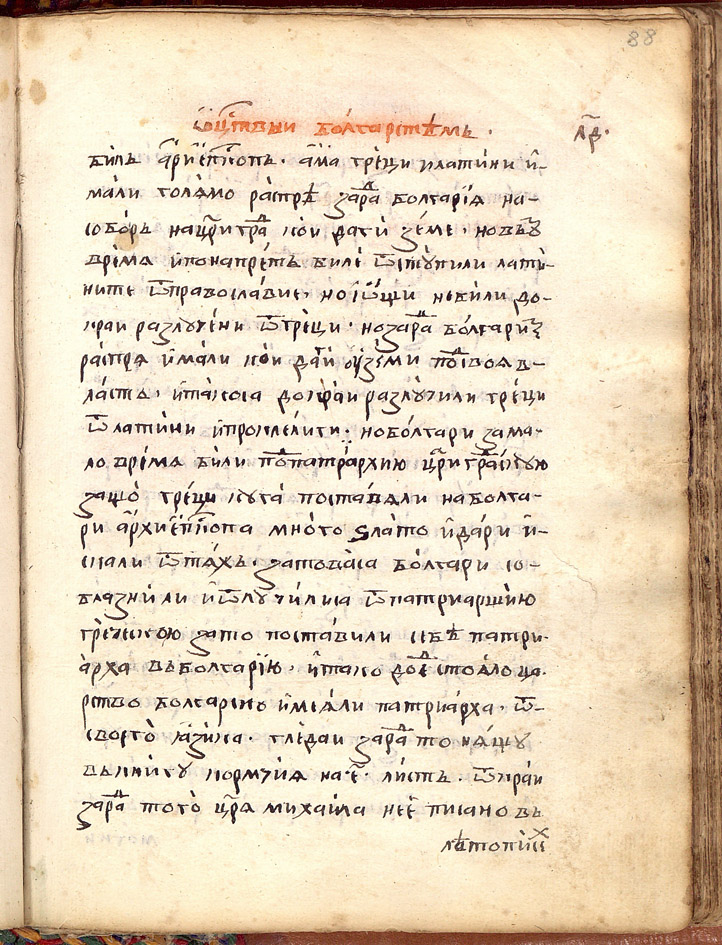 88
Ѡ цр҃твѣи болгарстѣмъ. л҃д.
билъ а҆рхїепⷭ҇копъ. а҆ма грѣци и латини и҆-
мали голѧмо распрѣ заради болгарїѧ на-
соборъ на цр҃иградъ кои да ги земе. новъ ѹ
времѧ и҆ по напрѣтъ биле ѿстѹпили лати-
ните ѿ православие, но і҆ѡщи не били до-
краи разлѹчени ѿ грѣци. но заради болгари ѹ
распрѧ и҆мали кои да ги ѹземи под своѧ в-
ласть. и҆ такоса докраи разлѹчили грѣци
ѿ латини и҆ проклели ги. но болгари зама-
ло времѧ били под патрїархию цр҃иградскую
защо грѣци кога поставѧли на болга-
ри а҆рхїепⷭ҇копа много ѕлато и҆ дари и҆-
скали ѿ тѧхъ. затоваса болгари со-
блазнили и҆ ѿлѹчилиса ѿ патриаршїю
греческою зато поставили себѣ патри-
арха въ болгарїю. и҆ тако догде стоѧло ца-
рство болгарско и҆мѧли патриарха. ѿ
своего ꙗ҆зика. гледаи заради то нѧщѹ
въ книгѹ кормчиѧ на е҃. листъ. ѿ краи
заради того цр҃ѧ михаила не е҆ писано въ
лѣтописⷯ